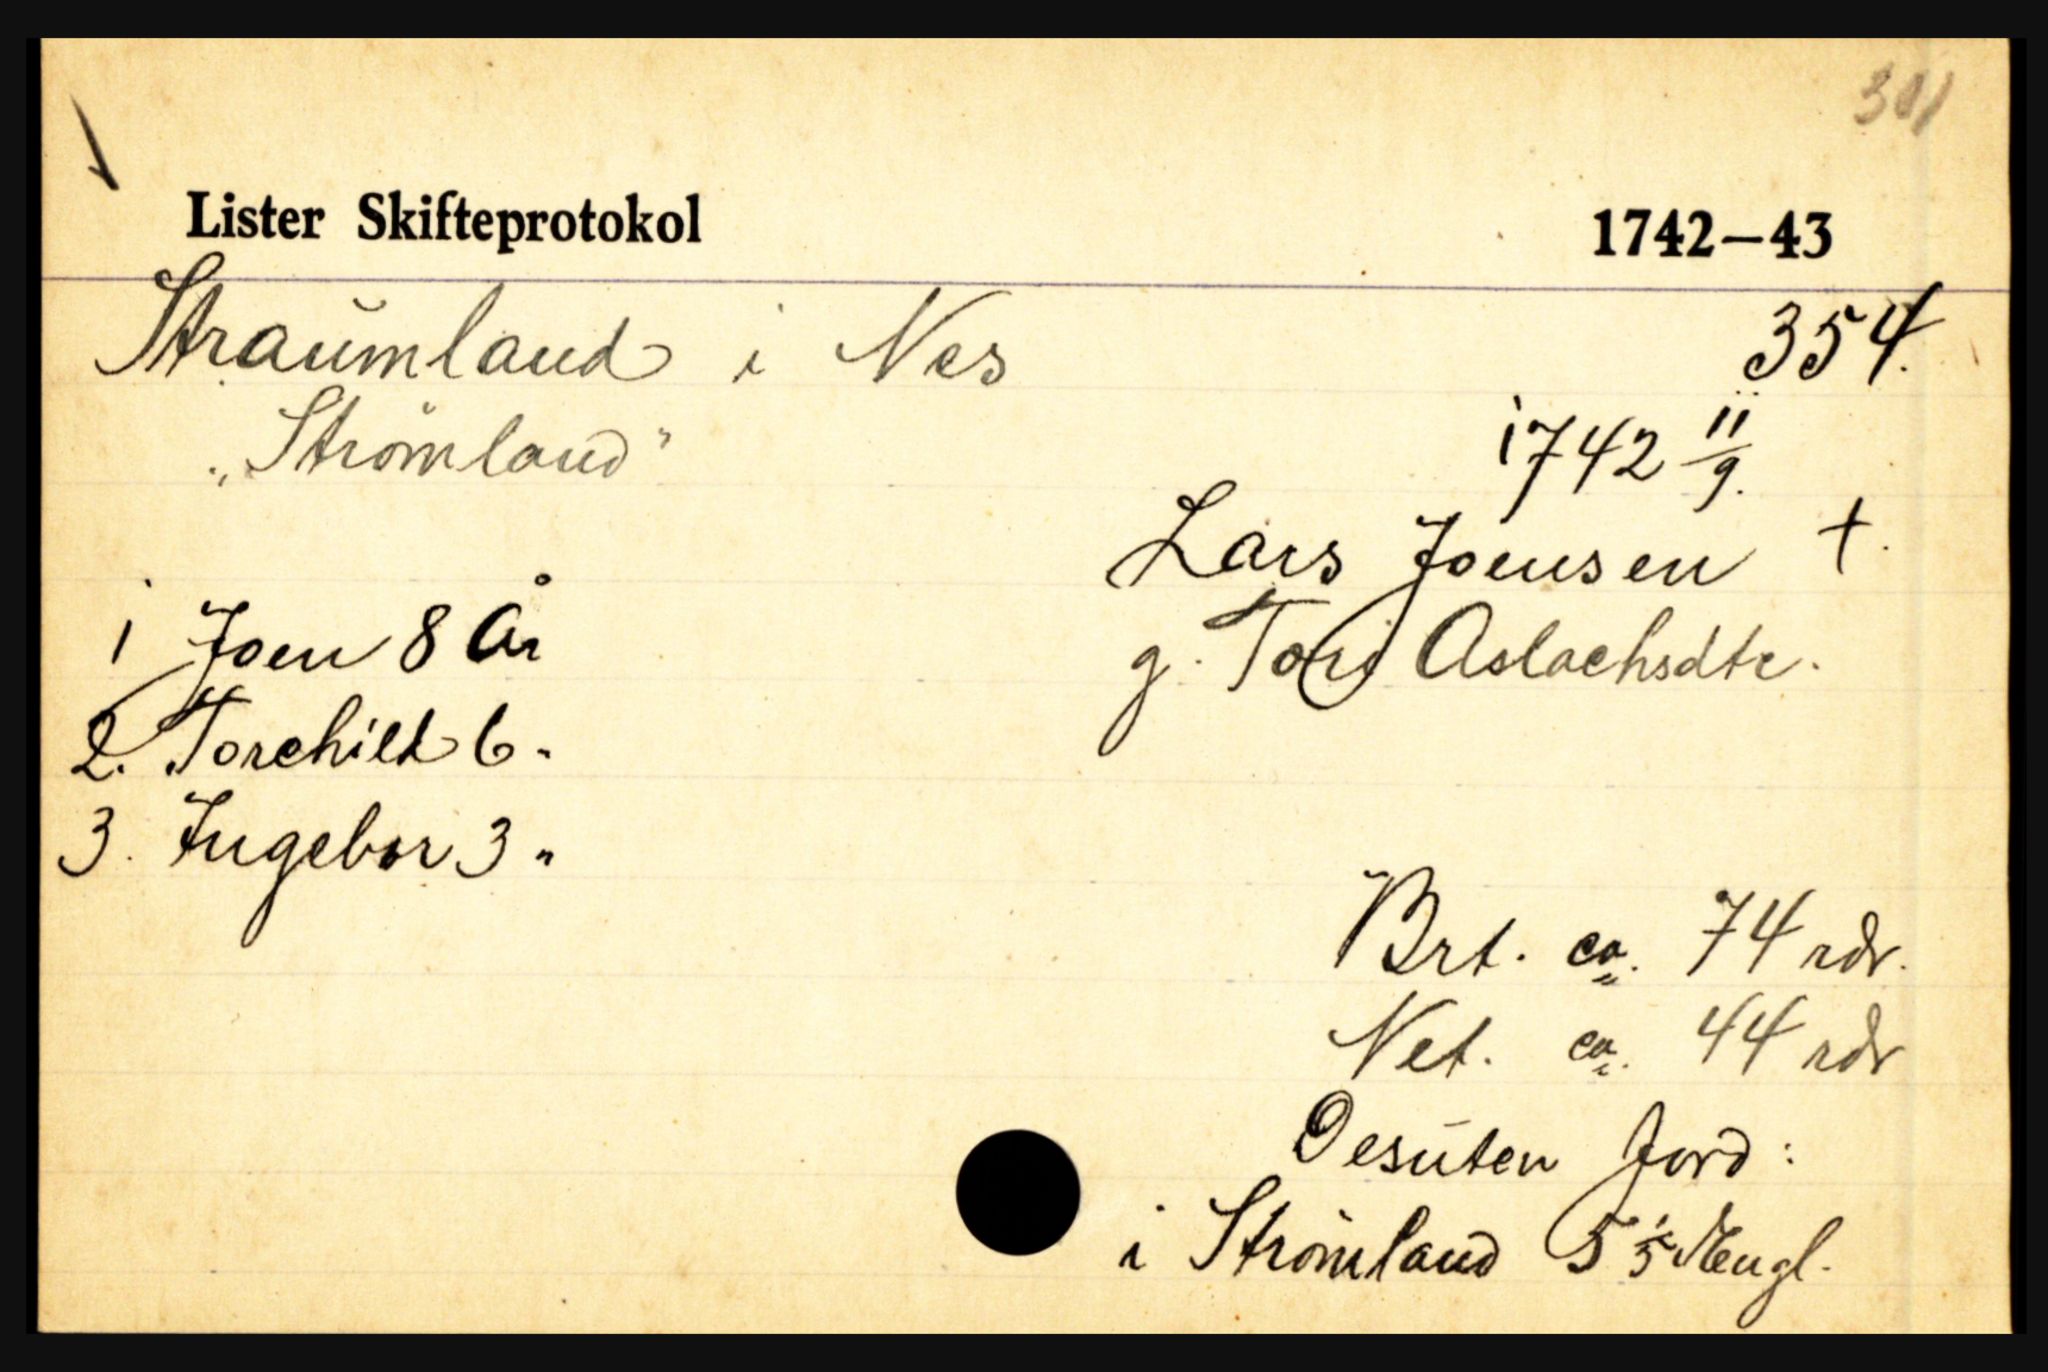 Lister Skifteprotokol 1742–43
Straumland i Nes 354.
„Strömland"
1742 11/9.
Lars Joensen †.
g. Tori Aslachsdtr.
1 Joen 8 År
2. Torchild 6 "
3. Ingebor 3 "
Brt. ca. 74 rdr.
Net. ca. 44 rdr
Desuten Jord:
i Strömland 5 1/5 Mengl.